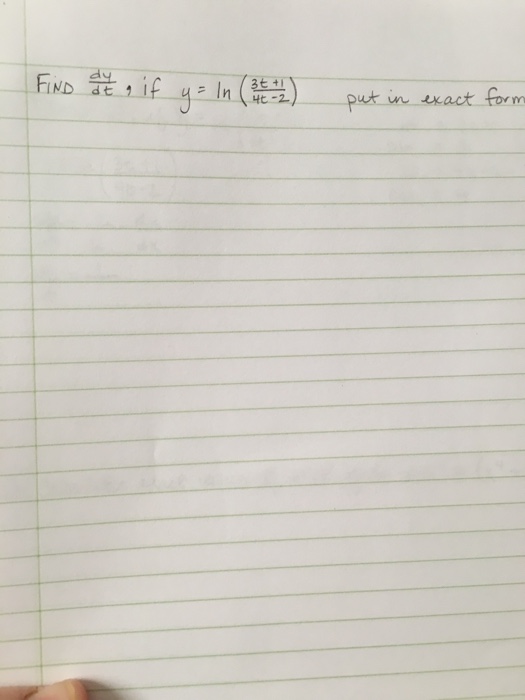 FIND dy/dt, if y = ln (3t+1/4t-2) put in exact form